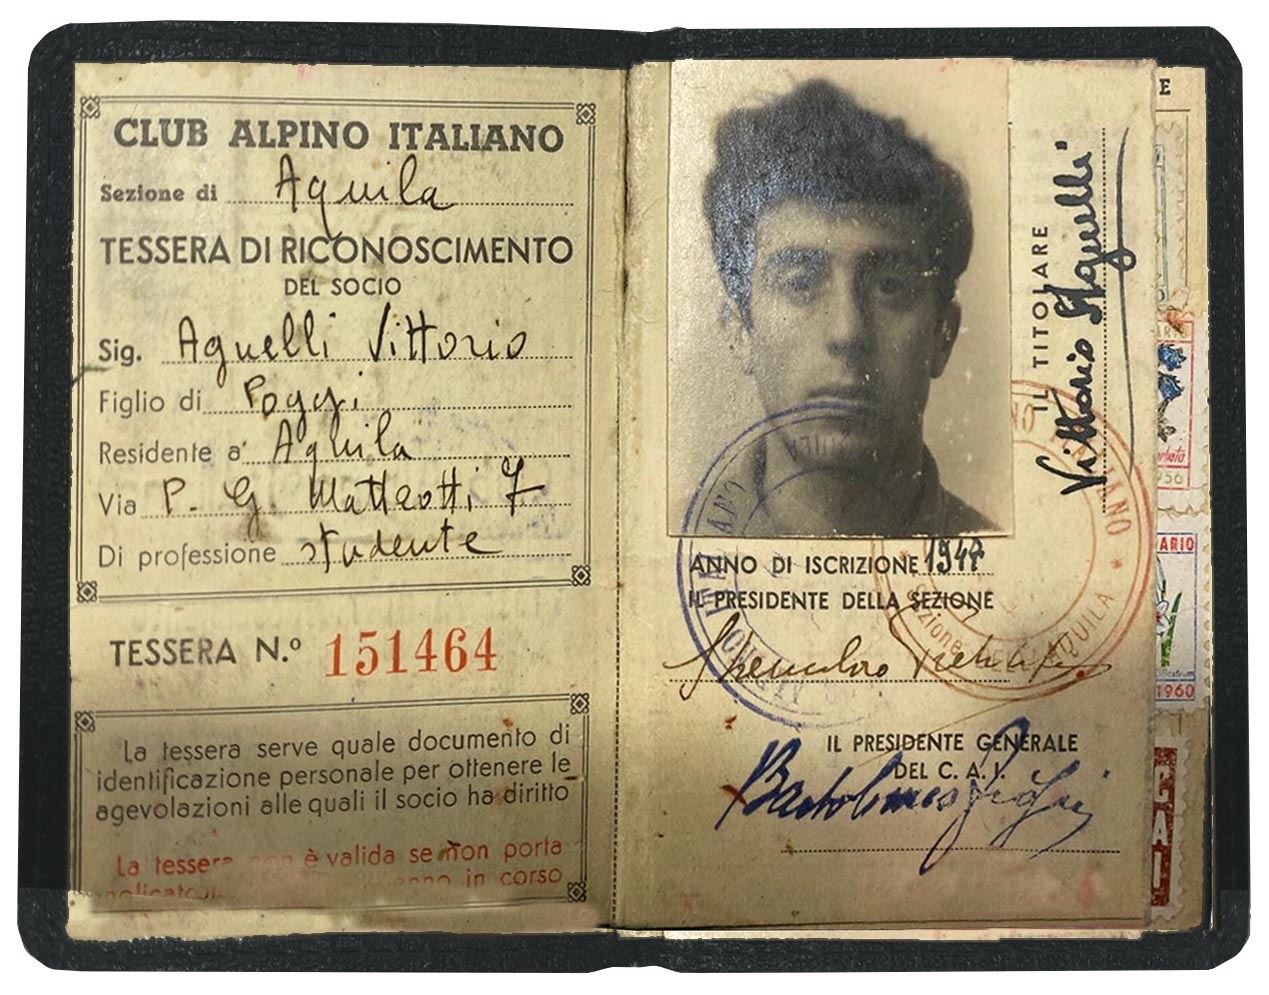 CLUB ALPINO ITALIANO
Sezione di Aquila
TESSERA DI RICONOSCIMENTO
DEL SOCIO
Sig. Agnelli Vittorio
Figlio di Poggi
Residente a Aquila
Via P. G. Matteotti 7
Di professione studente
TESSERA N.º 151464
La tessera serve quale documento di
identificazione personale per ottenere le
agevolazioni alle quali il socio ha diritto
La tessera non è valida se non porta
anno in corso
IL TITOLARE
Vittorio Agnelli
ANNO DI ISCRIZIONE 1947
IL PRESIDENTE DELLA SEZIONE
IL PRESIDENTE GENERALE
DEL C. A. I.
Bartolomeo Figari
Sezione
AQUILA
E
1956
ARIO
1960